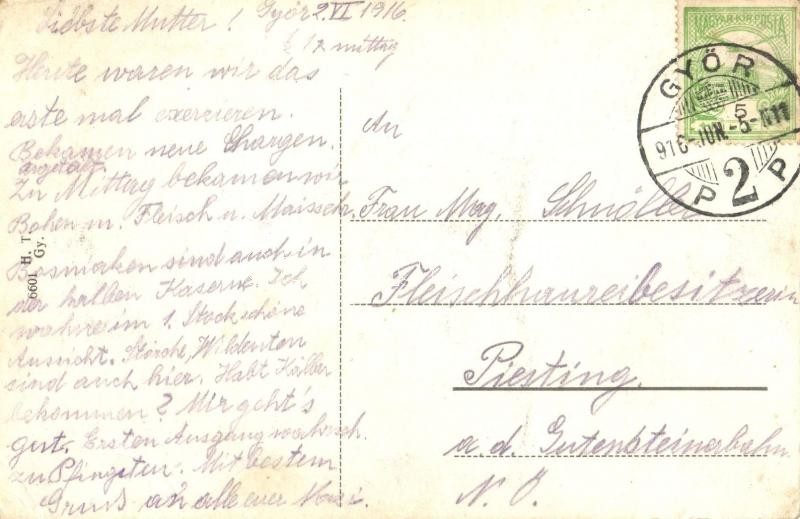 Liebste Mutter! Győr 2. VI 1916.
12 mittag
Heute waren wir das
erste mal exerzieren.
Bekamen neue Chargen.
Zu Mittag bekamen wir
Bohen m. Fleisch u. Maissch.
Bosniaken sind auch in
der halben Kaserne. Ich
wohne im 1. Stock schöne
Aussicht. Störche, Wildenten
sind auch hier. Habt Kälber
bekommen? Mir geht's
gut. Ersten Ausgang wahrsch.
zu Pfingsten. Mit bestem
Gruss an alle euer
An
Frau Mag. Schmöller
Fleischhaureibesitzerin
Piesting.
a. d. Gutensteinerbahn
N. Ö.
6601 H. T.
Gy.
MAGYAR KIR. POSTA
5
GYŐR
916 JUN. -5
P 2 P